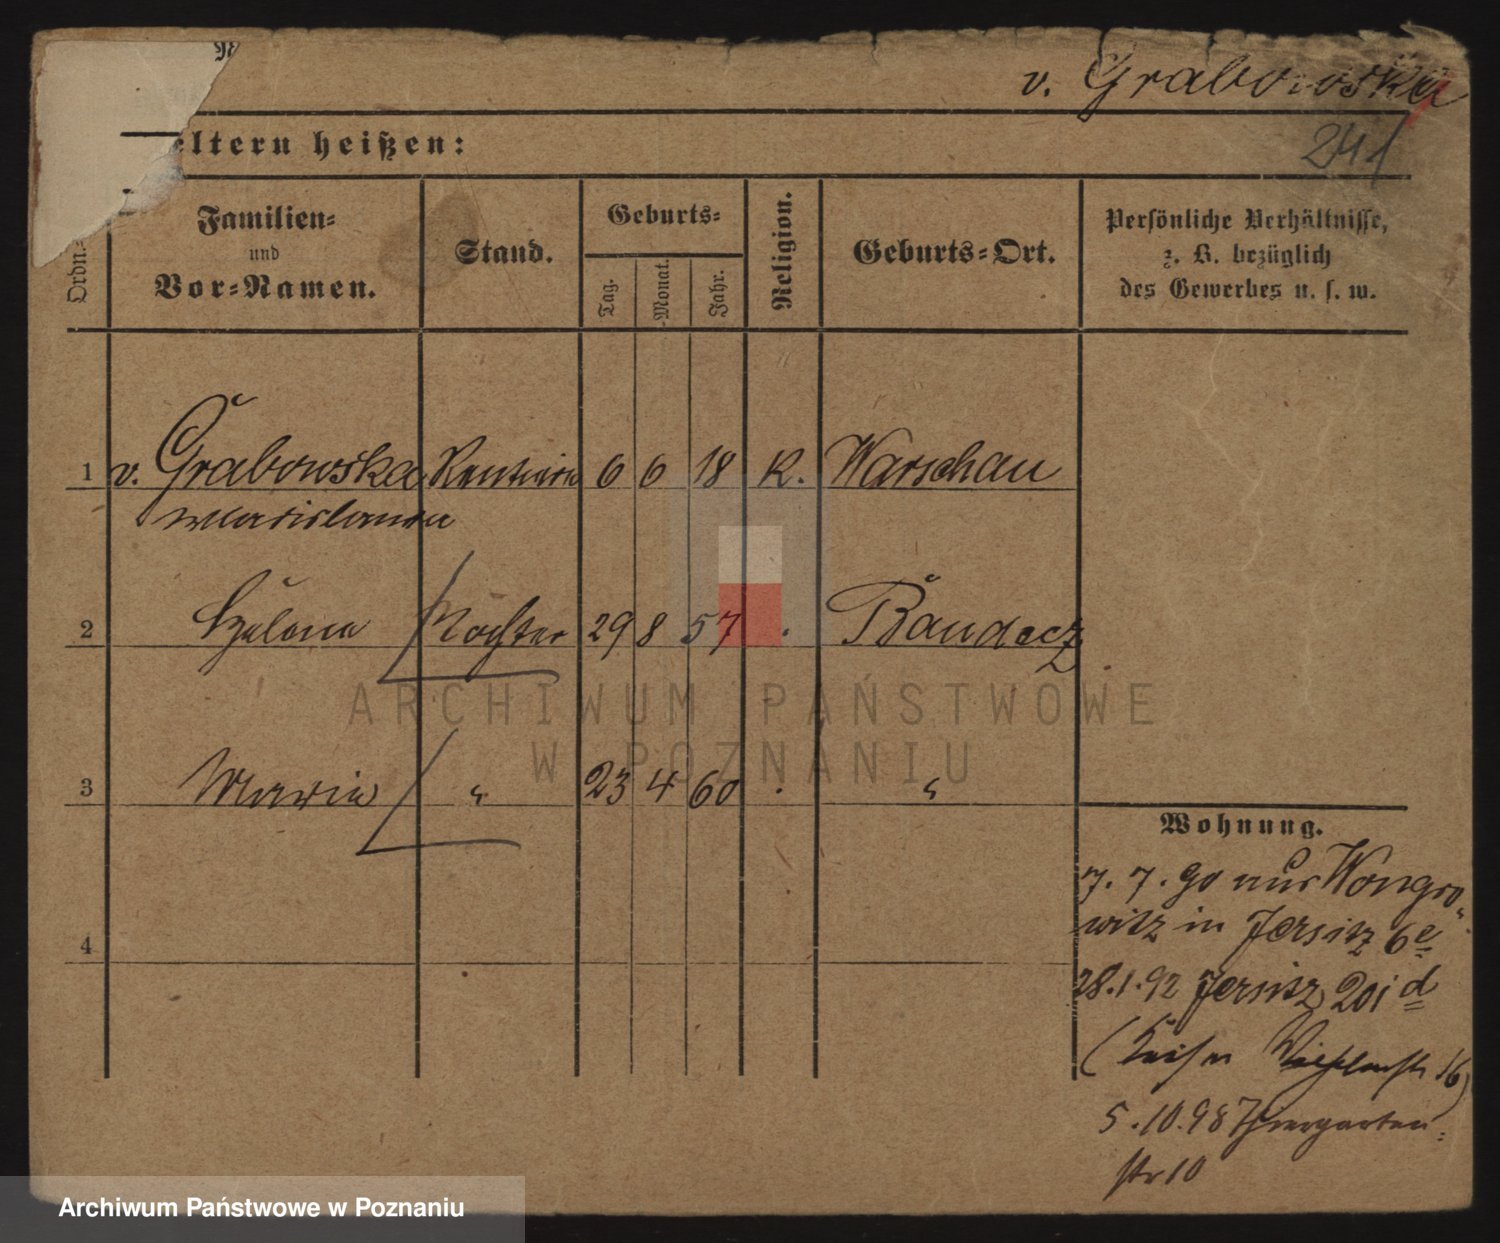 v. Grabowska
241
eltern heißen:
Ordn.
Familien-
und
Vor-Namen.
Stand.
Geburts-
Tag.
Monat.
Jahr.
Religion.
Geburts-Ort.
Persönliche Verhältnisse,
z. B. bezüglich
des Gewerbes u. s. w.
1 v. Grabowska Rentiere 6 6 18 K. Warschau
2 Tochter 29 8 57 .
3 Maria " 23 4 60 . "
4
Wohnung.
7. 7. 90 aus Wongro-
witz in Jersitz 6e
28.1.92 Jersitz 201 d
(Kaiser Wilhelmstr 16)
5.10.98 Thiergarten-
str 10
ARCHIWUM PAŃSTWOWE
W POZNANIU
Archiwum Państwowe w Poznaniu